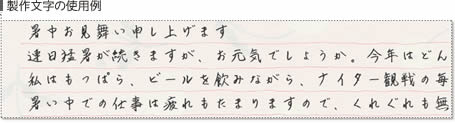 製作文字の使用例
暑中お見舞い申し上げます
連日猛暑が続きますが、お元気でしょうか。今年はどん
私はもっぱら、ビールを飲みながら、ナイター観戦の毎
暑い中での仕事は疲れもたまりますので、くれぐれも無